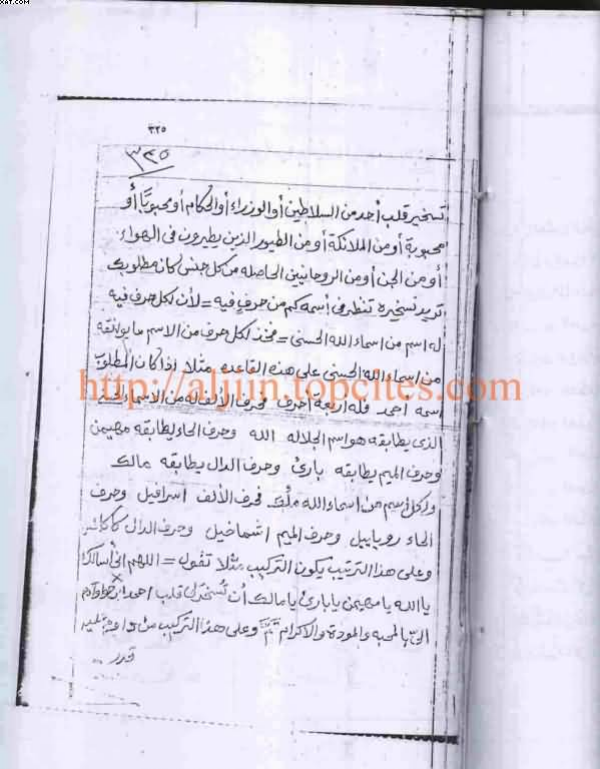 XAT.COM
٣٢٥
٣٢٥
تسخير قلب أحد من السلاطين أو الوزراء أو الحكام أو محبوبًا أو
محبوبة أو من الملائكة أو من الطيور الذين يطيرون فى الهواء
أو من الجن أو من الروحانيين الحاصله من كل جنس كان مطلوبك
تريد تسخيره تنظر فى أسمه كم من حرف فيه = لأن لكل حرف فيه
له اسم من اسماء الله الحسنى = فخذ لكل حرف من الاسم ما يوافقه
من اسماء الله الحسنى على هذه القاعده مثلا اذا كان المطلوب
http://aljiin.topcites.com
اسمه احمد فله اربعة احرف فحرف الألف له من الاسماء الحسنى
الذى يطابقه هو اسم الجلاله الله وحرف الحاء يطابقه مهيمن
وحرف الميم يطابقه بارئ وحرف الدال يطابقه مالك
ولكل اسم من اسماء الله ملك فحرف الألف اسرافيل وحرف
الحاء روياييل وحرف الميم اشماخيل وحرف الدال
وعلى هذا الترتيب يكون التركيب مثلا تقول = اللهم انى أسالك
يا الله يا مهيمن يا بارئ يا مالك أن تسخر لى قلب احمد ابن
بالمحبه والمودة والاكرام وعلى هذا التركيب من
قدر